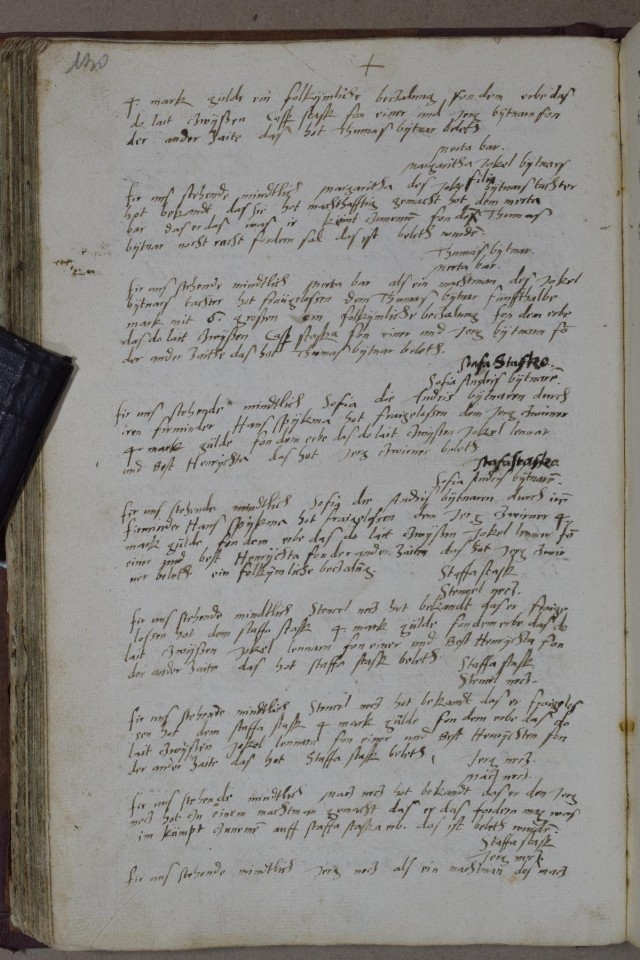 4 mark gulde ein folkymliche beczalung fon dem erbe das
do lait czwyssen Casp stask fon einer und Jerg bytnarn fon
der ander zaite das hot Thomas bytnar beleth
merta bar.
margaritha Jokel bytnars
filia
fir uns stehende mindtlich margaritha des Jokel bytnars tachter
hot bekandt das sie hot machthafftig gemacht hot dem merta
bar das er das was ir kommt czunemen fon des Thomas
bytnar noch racht fordern sal das ist beleth worden
Thomas bytnar.
merta bar.
fir uns stehende mindtlich merta bar als ein machtman des Jokel
bytnars tachter hot fraigelosen dem Thomas bytnar funffthalbe
mark mit 6 groschen ein folkymliche beczalung fon dem erbe
das do lait czwyssen Casp staska fon einer und Jerg bytnarn fo
der ander zaitte das hot Thomas bytnar beleth.
stafa Stasko.
Sofia Andris bytnaren.
fir uns stehende mindtlich Sofia die Andris bytnaren durch
iren firminder Hans Spykma hot fraigelosen dem Jerg czwirner
4 mark gulde fon dem erbe das do lait czwyssen Jokel lenart
und Best Henrychta das hot Jerg czwirner beleth
stafa stasko
Sofia Andris bytnaren.
fir uns stehende mindtlich Sofia die Andris bytnaren durch iren
firminder Hans Spykma hot fraigelosen dem Jerg czwirner 4
mark gulde fon dem erbe das do lait czwyssen Jokel lennar fon
einer und best Henrychta fon der ander zaiten das hot Jerg czwir
ner beleth ein folkymliche beczalung.
Staffa stask
Stencel necz.
fir uns stehende mindtlich Stencel necz hot bekandt das er fraige
losen hot dem staffa stask 4 mark gulde fon dem erbe das do
lait czwyssen Jokel lennarn fon einer und Best Henrychta fon
der ander zaite das hot staffa stask beleth
Staffa stask
Stencel necz.
fir uns stehende mindtlich Stencel necz hot bekandt das er fraigelos
sen hot dem staffa stask 4 mark gulde fon dem erbe das do
lait czwyssen Jokel lennarn fon einer und Best Henrychten fon
der ander zaite das hot Staffa stask beleth.
Jerg necz.
macz necz.
fir uns stehende mindtlich macz necz hot bekandt das er den Jerg
necz hot czu einem machtman gemacht das er das fordern mag was
im kumpt czunemen auff staffa staska erb. das ist beleth worden.
Staffa stask
Jerg necz.
fir uns stehende mindtlich Jerg necz als ein machtman des macz